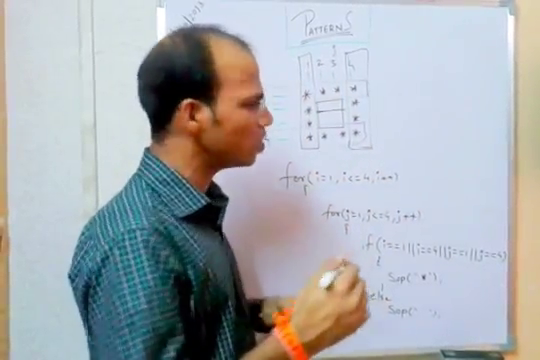 /2013
PATTERNS
1 2 3 4
* * * *
* *
* *
* * * *
for(i=1, i<=4, i++)
{
for(j=1, j<=4, j++)
{
if(i==1||i==4||j==1||j==4)
{
Sop("*");
else
Sop(" ");